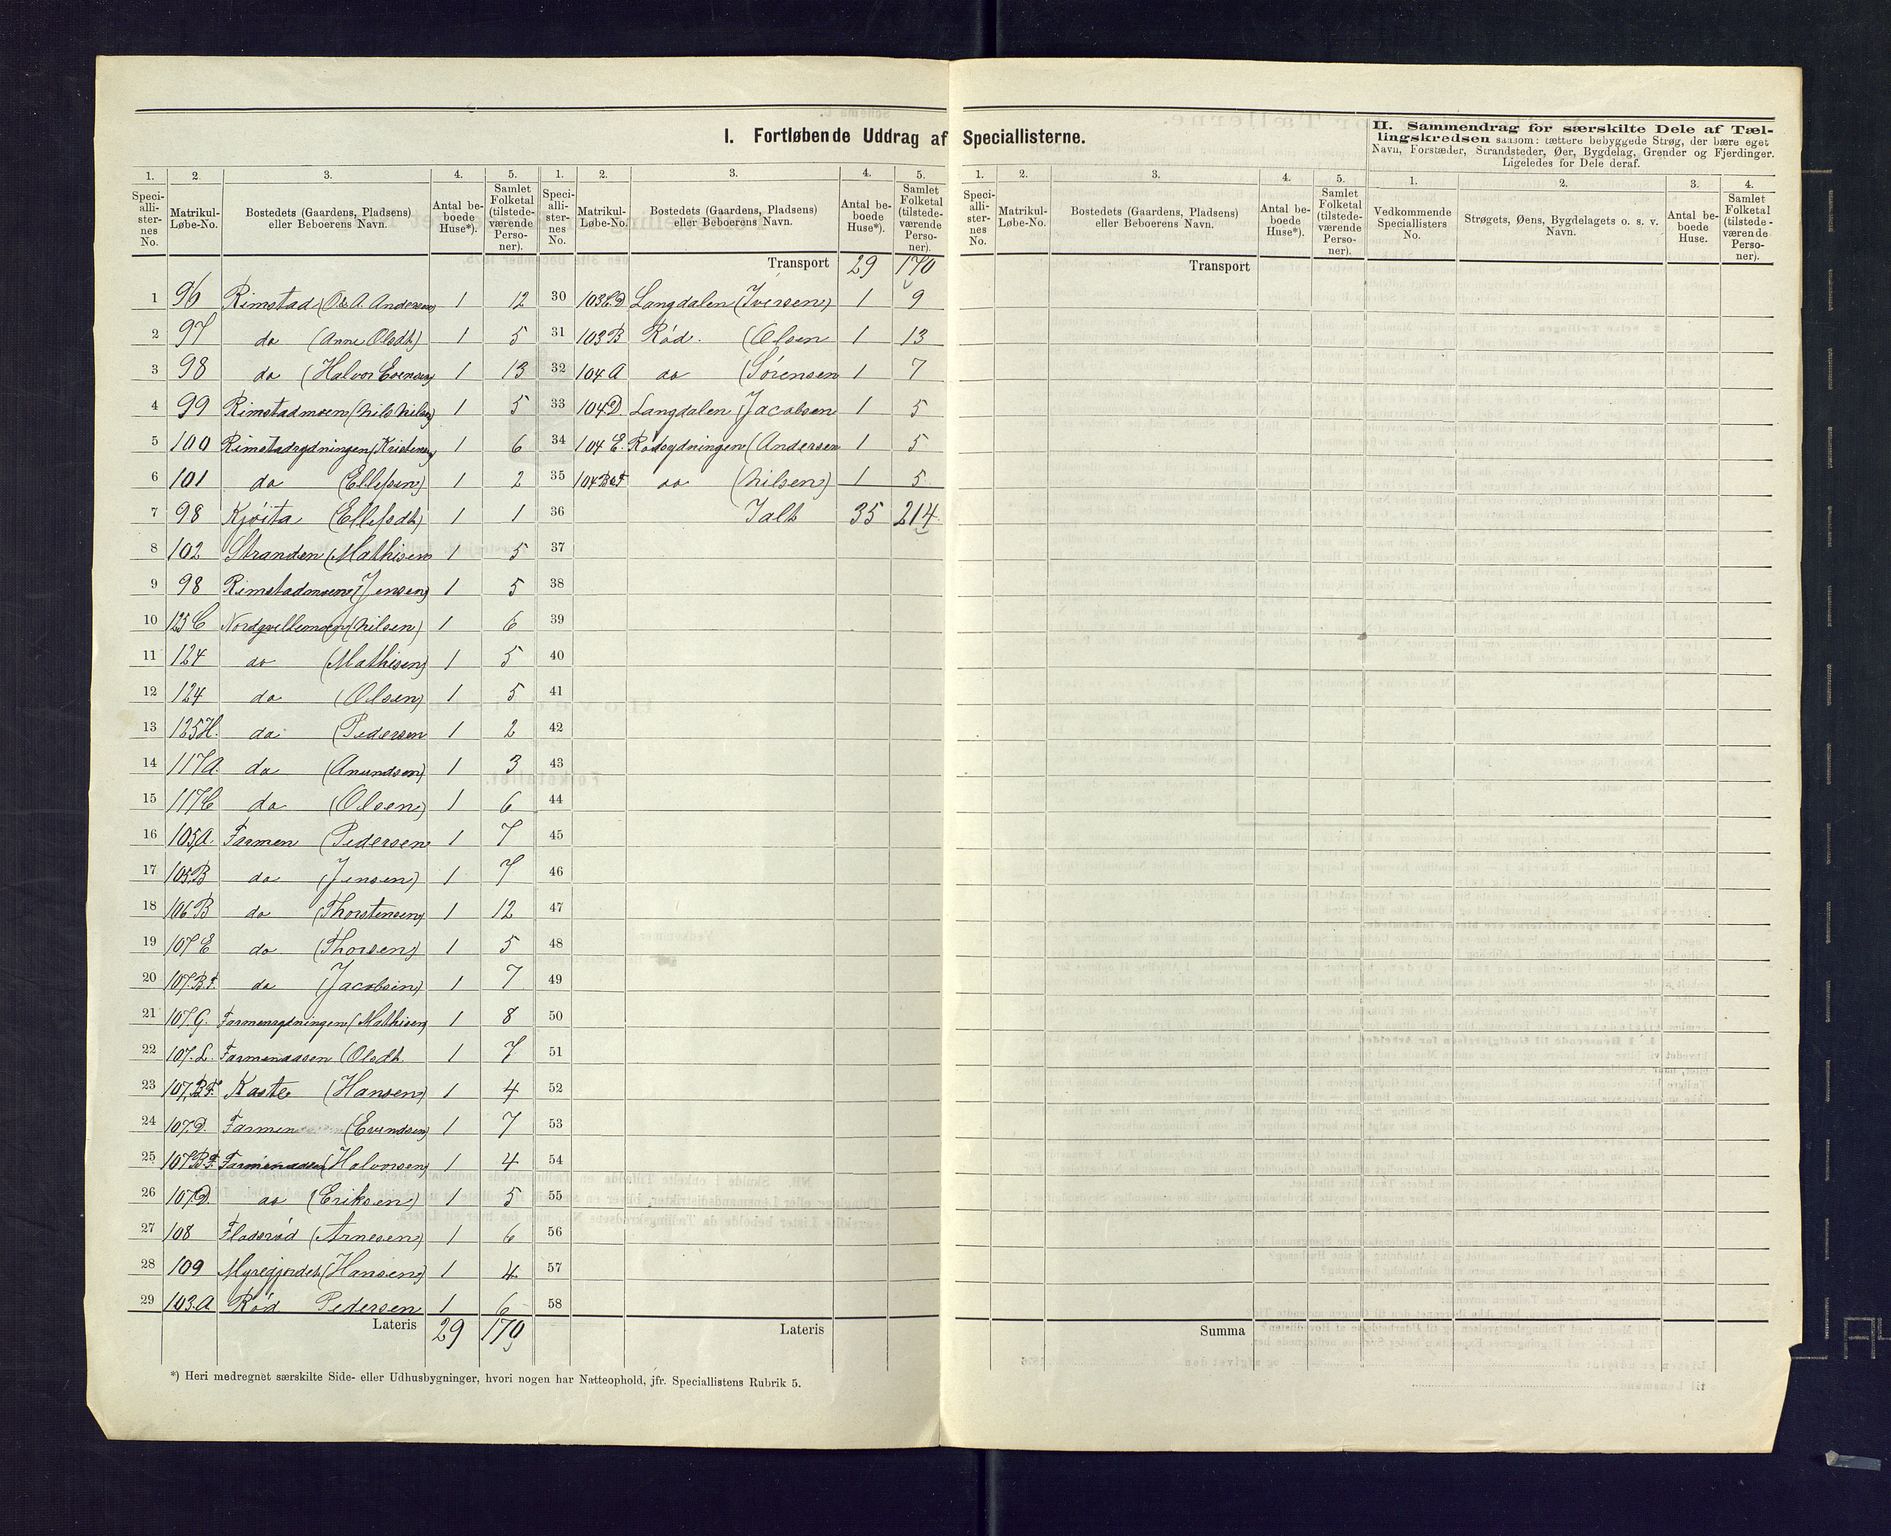 I. Fortløbende Uddrag af Speciallisterne.
II. Sammendrag for særskilte Dele af Tæl-
lingskredsen saasom: tættere bebyggede Strøg, der bære eget
Navn, Forstæder, Strandsteder, Øer, Bygdelag, Grender og Fjerdinger.
Ligeledes for Dele deraf.
1. 2. 3. 4. 5. 1. 2. 3. 4. 5. 1. 2. 3. 4. 5. 1. 2. 3. 4.
Speci-alli-ster-nes No. Matrikul-Løbe-No. Bostedets (Gaardens, Pladsens) eller Beboerens Navn. Antal be-boede Huse*). Samlet Folketal (tilstede-værende Perso-ner).
Speci-alli-ster-nes No. Matrikul-Løbe-No. Bostedets (Gaardens, Pladsens) eller Beboerens Navn. Antal be-boede Huse*). Samlet Folketal (tilstede-værende Perso-ner).
Speci-alli-ster-nes No. Matrikul-Løbe-No. Bostedets (Gaardens, Pladsens) eller Beboerens Navn. Antal be-boede Huse*). Samlet Folketal (tilstede-værende Perso-ner).
Vedkommende Speciallisters No. Strøgets, Øens, Bygdelagets o. s. v. Navn. Antal be-boede Huse. Samlet Folketal (tilstede-værende Perso-ner).
1 96 Rimstad (Ole A. Andersen) 1 12
2 97 do (Anne Olsdt) 1 5
3 98 do (Halvor Evensen) 1 13
4 99 Rimstadmoen (Nils Nilsen) 1 5
5 100 Rimstadrydningen (Kristensen) 1 6
6 101 do (Ellefsen) 1 2
7 98 Kjøita (Ellefsdt) 1 1
8 102 Stranden (Mathisen 1 5
9 98 Rimstadmoen (Jensen) 1 5
10 125C Nordgvellemoen (Nilsen) 1 6
11 124 do (Mathisen) 1 5
12 124 do (Olsen) 1 5
13 125H. do (Pedersen 1 2
14 117A. do (Anundsen) 1 3
15 117C do (Olsen) 1 6
16 105A. Farmen (Pedersen 1 7
17 105B do (Jensen) 1 7
18 106B do (Thorstensen) 1 12
19 107E do (Thorsen) 1 5
20 107.B.F. do (Jacobsen) 1 7
21 107.G. Farmenrydningen (Mathisen) 1 8
22 107.L. Farmenaasen (Olsdt. 1 7
23 107.B.F. Kaste (Hansen) 1 4
24 107.D. Farmen (Evensen) 1 7
25 107B.F. Farmenaasen (Halvorsen) 1 4
26 107.D. do (Eriksen) 1 5
27 108 Flodsrød (Arnesen) 1 6
28 109 Myregjordet (Hansen) 1 4
29 103.A Rød Pedersen 1 6
Lateris 29 170
Transport 29 170
30 103C.D. Langdalen (Iversen) 1 9
31 103B Rød. (Olsen 1 13
32 104A do (Sørensen 1 7
33 104.D. Langdalen (Jacobsen 1 5
34 104E. Rødsrydningen (Andersen 1 5
35 104B.F. do (Nilsen) 1 5
36 Ialt 35 214.
37
38
39
40
41
42
43
44
45
46
47
48
49
50
51
52
53
54
55
56
57
58
Lateris
Transport
Summa
*) Heri medregnet særskilte Side- eller Udhusbygninger, hvori nogen har Natteophold, jfr. Speciallistens Rubrik 5.